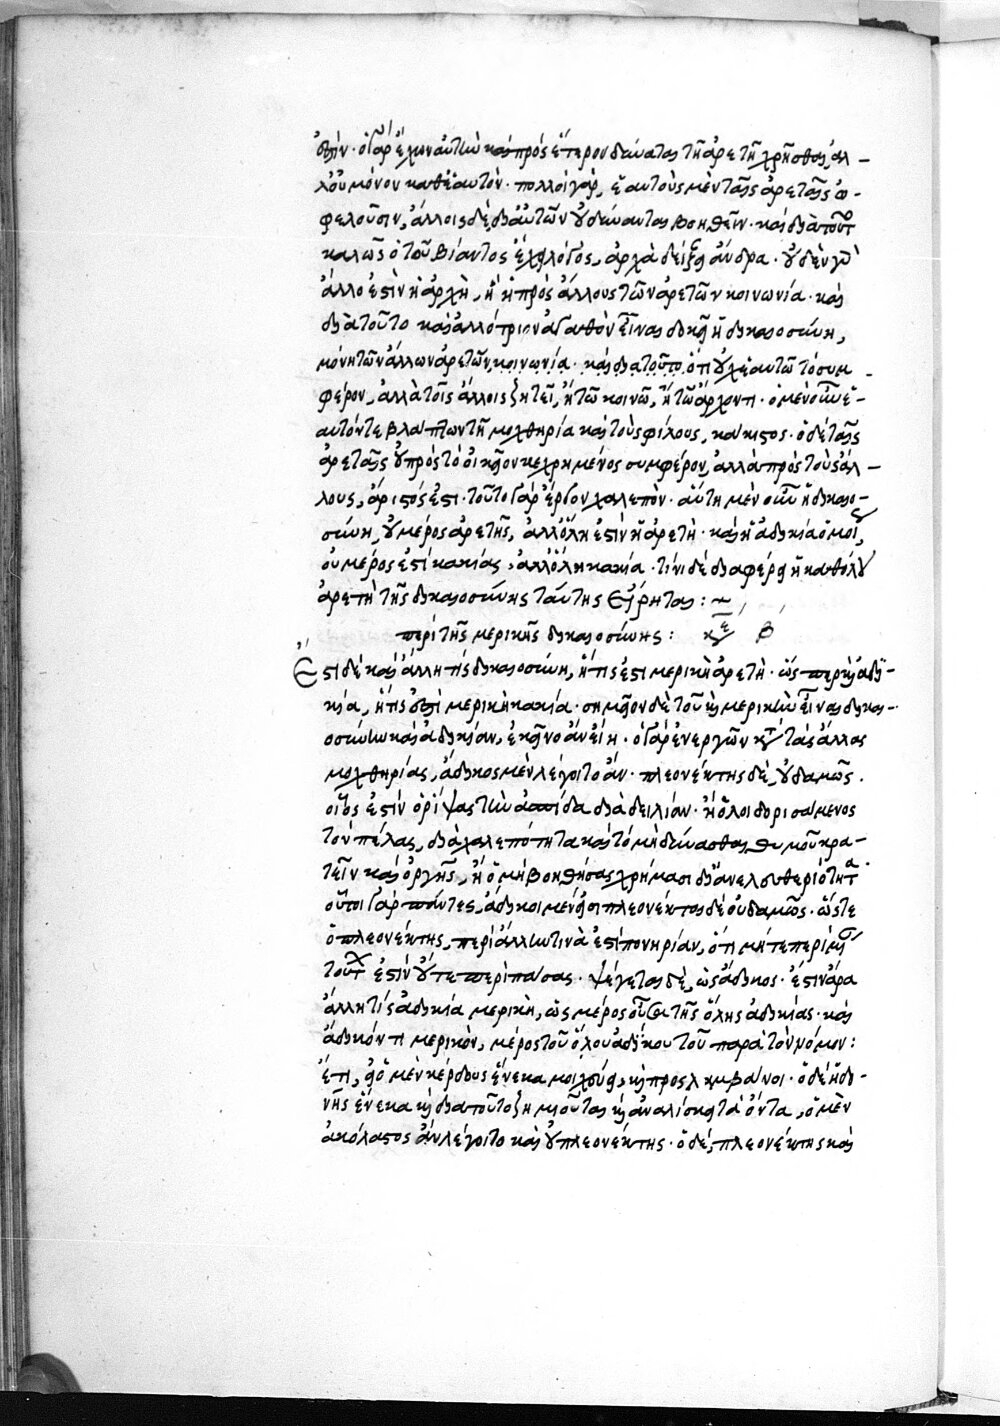 ἐστίν· ὁ γὰρ ἔχων αὐτὴν καὶ πρὸς ἕτερον δύναται τῇ ἀρετῇ χρῆσθαι, ἀλ-
λ' οὐ μόνον καθ' ἑαυτόν· πολλοὶ γὰρ, ἑαυτοὺς μὲν ταῖς ἀρεταῖς ὠ-
φελοῦσιν, ἄλλοις δὲ δι' αὐτῶν οὐ δύνανται βοηθεῖν· καὶ διὰ τοῦτο
καλῶς ὁ τοῦ Βίαντος ἔχει λόγος, ἀρχὰ δείξει ἄνδρα· οὐδὲν γὰρ
ἄλλο ἐστὶν ἡ ἀρχὴ, ἢ ἡ πρὸς ἄλλους τῶν ἀρετῶν κοινωνία· καὶ
διὰ τοῦτο καὶ ἀλλότριον ἀγαθὸν εἶναι δοκεῖ ἡ δικαιοσύνη,
μόνη τῶν ἄλλων ἀρετῶν κοινωνία· καὶ διὰ τοῦτο ὅτι οὐχ ἑαυτῶ τὸ συμ-
φέρον, ἀλλὰ τοῖς ἄλλοις ζητεῖ, ἢ τῶ κοινῶ, ἢ τῶ ἄρχοντι· ὁ μὲν οὖν ἑ-
αυτόν τε βλάπτων τῇ μοχθηρία καὶ τοὺς φίλους, κάκιστος· ὁ δὲ ταῖς
ἀρεταῖς οὐ πρὸς τὸ οἰκεῖον κεχρημένος συμφέρον, ἀλλὰ πρὸς τοὺς ἄλ-
λους, ἄριστός ἐστι· τοῦτο γὰρ ἔργον χαλεπόν· αὕτη μὲν οὖν ἡ δικαιο-
σύνη, οὐ μέρος ἀρετῆς, ἀλλ' ὅλη ἐστὶν ἡ ἀρετή· καὶ ἡ ἀδικία ὁμοίως,
οὐ μέρος ἐστὶ κακίας, ἀλλ' ὅλη κακία· τίνι δὲ διαφέρει ἡ καθόλου
ἀρετὴ τῆς δικαιοσύνης ταύτης εἴρηται: ~
περὶ τῆς μερικῆς δικαιοσύνης: κεφ β
Ἔστι δὲ καὶ ἄλλη τίς δικαιοσύνη, ἥτις ἐστὶ μερικὴ ἀρετή· ὥσπερ καὶ ἀδι-
κία, ἥτις ἐστὶ μερικὴ κακία· σημεῖον δὲ τοῦ καὶ μερικὴν εἶναι δικαι-
οσύνην καὶ ἀδικίαν, ἐκεῖνο ἂν εἴη· ὁ γὰρ ἐνεργῶν κατὰ τὰς ἄλλας
μοχθηρίας, ἄδικος μὲν λέγοιτο ἄν· πλεονέκτης δὲ, οὐδαμῶς·
οἷος ἐστὶν ὁ ῥίψας τὴν ἀσπίδα διὰ δειλίαν· ἢ ὁ λοιδορισάμενος
τὸν πέλας, διὰ χαλεπότητα καὶ τὸ μὴ δύνασθαι θυμοῦ κρα-
τεῖν καὶ ὀργῆς, ἢ ὁ μὴ βοηθήσας χρήμασι δι' ἀνελευθεριότητα·
οὗτοι γὰρ πάντες, ἄδικοι μέν εἰσι πλεονέκται δὲ οὐδαμῶς· ὥστε
ὁ πλεονέκτης, περὶ ἄλλην τινὰ ἐστὶ πονηρίαν, ὅτι μήτε περὶ μίαν
τούτων ἐστὶν οὔτε περὶ πάσας· ψέγεται δὲ, ὡς ἄδικος· ἔστιν ἄρα
ἄλλη τίς ἀδικία μερικὴ, ὡς μέρος οὖσα τῆς ὅλης ἀδικίας· καὶ
ἄδικόν τι μερικὸν, μέρος τοῦ ὅλου ἀδίκου τοῦ παρὰ τὸν νόμον:
ἔτι, εἰ ὁ μὲν κέρδους ἕνεκα μοιχεύει, καὶ προσλαμβάνοι· ὁ δὲ ἡδο-
νῆς ἕνεκα καὶ διὰ τοῦτο ζημιοῦται καὶ ἀναλίσκει τὰ ὄντα, ὁ μὲν
ἀκόλαστος ἂν λέγοιτο καὶ οὐ πλεονέκτης· ὁ δὲ, πλεονέκτης καὶ